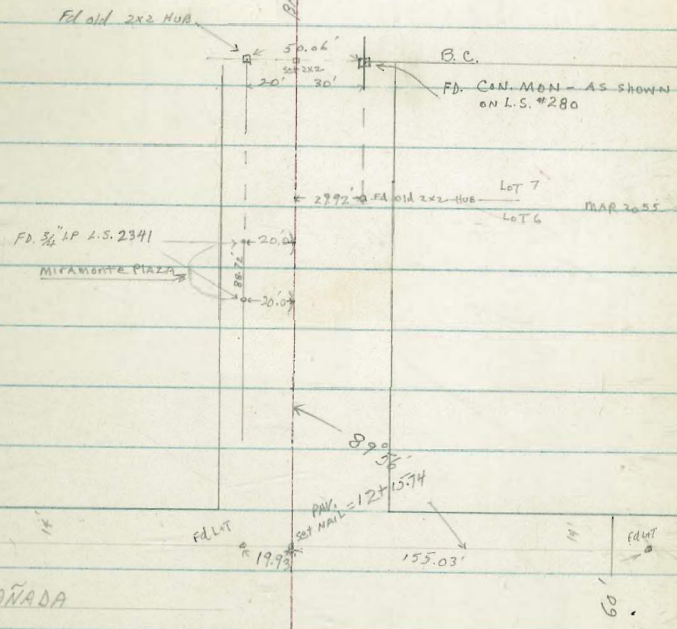 Fd old 2x2 HUB
50.06'
set 2x2
20' 30'
B.C.
FD. CON. MON - AS SHOWN
ON L.S. #280
29.92' Fd old 2x2 HUB
LOT 7
LOT 6
MAP 2055
FD. 3/4" I.P. L.S. 2341
MIRAMONTE PLAZA
20.0'
88.72'
20.0'
89° 56'
PAV.
set NAIL = 12+15.74
14'
Fd L&T
19.93'
155.03'
14'
Fd L&T
60'
AÑADA